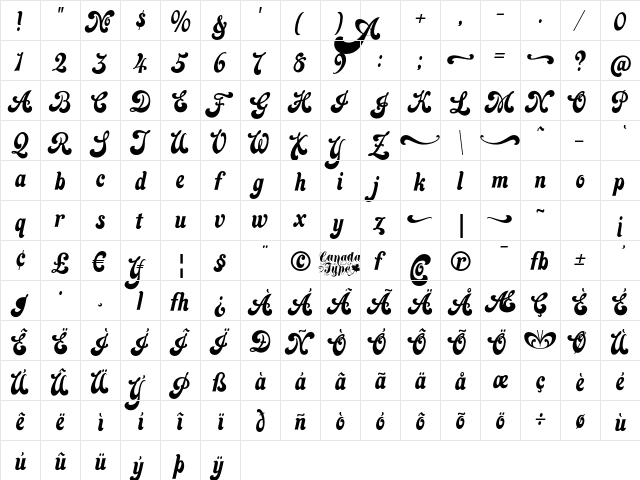 ! " № $ % & ' ( ) A + , - . / 0
1 2 3 4 5 6 7 8 9 : ; = ? @
A B C D E F G H I J K L M N O P
Q R S T U V W X Y Z \ ~ -
a b c d e f g h i j k l m n o p
q r s t u v w x y z | ~ i
¢ £ € ¥ ¦ § ¨ © Canada Type f ® ¯ fb ± ´
l fh ¿ À Á Â Ã Ä Å Æ Ç È É
Ê Ë Ì Í Î Ï Ð Ñ Ò Ó Ô Õ Ö Ø Ù
Ú Û Ü Ý Þ ß à á â ã ä å æ ç è é
ê ë ì í î ï ð ñ ò ó ô õ ö ÷ ø ù
ú û ü ý þ ÿ